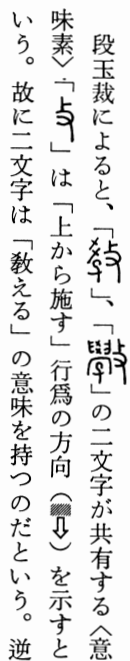 段玉裁によると、「敎」、「斆」の二文字が共有する〈意
味素〉・「攴」は「上から施す」行爲の方向（▨⇩）を示すと
いう。故に二文字は「敎える」の意味を持つのだという。逆